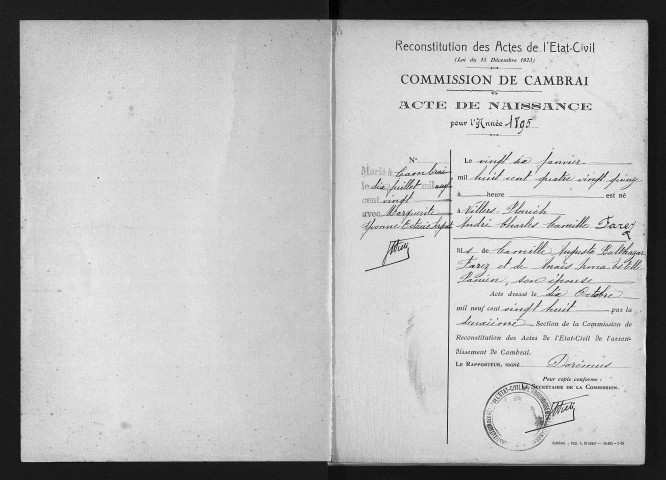 Reconstitution des Actes de l'Etat-Civil
(Loi du 15 Décembre 1923)
COMMISSION DE CAMBRAI
ACTE DE NAISSANCE
pour l'Année 1895
N°
Marié à Cambrai
le dix juillet mil neuf
cent vingt
avec Marguerite
Yvonne
Le vingt six janvier
mil huit cent quatre vingt quinze
à heure est né
à Villers Plouich
André Charles Camille Farez
fils de Camille Auguste Balthazar
Farez et de Anaïs
son épouse
Acte dressé le dix Octobre
mil neuf cent vingt huit par la
deuxième Section de la Commission de
Reconstitution des Actes de l'Etat-Civil de l'arron-
dissement de Cambrai.
LE RAPPORTEUR, SIGNÉ Dorémus
Pour copie conforme :
LE SECRÉTAIRE DE LA COMMISSION.